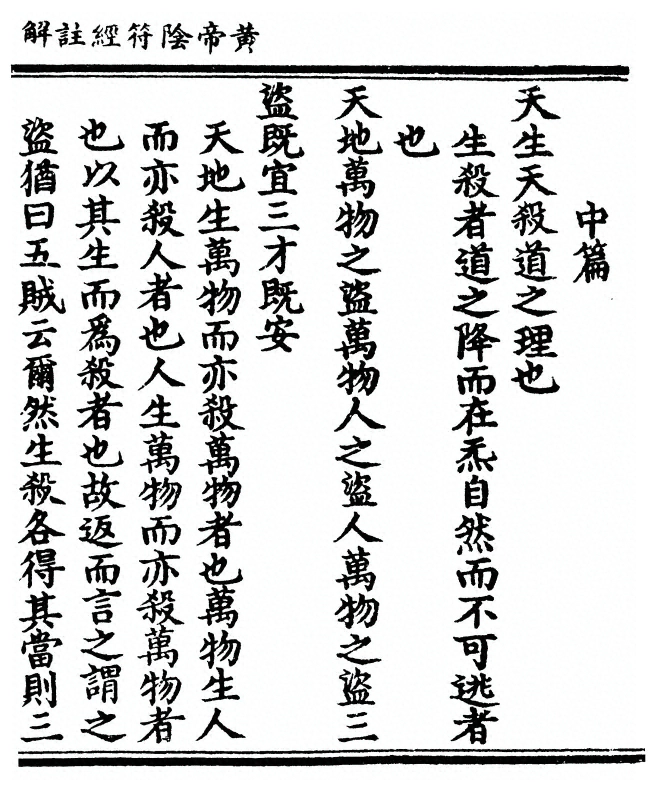 黄帝陰符經註解
中篇
天生天殺道之理也
生殺者道之降而在炁自然而不可逃者
也
天地萬物之盜萬物人之盜人萬物之盜三
盜既宜三才既安
天地生萬物而亦殺萬物者也萬物生人
而亦殺人者也人生萬物而亦殺萬物者
也以其生而爲殺者也故返而言之謂之
盜猶曰五賊云爾然生殺各得其當則三